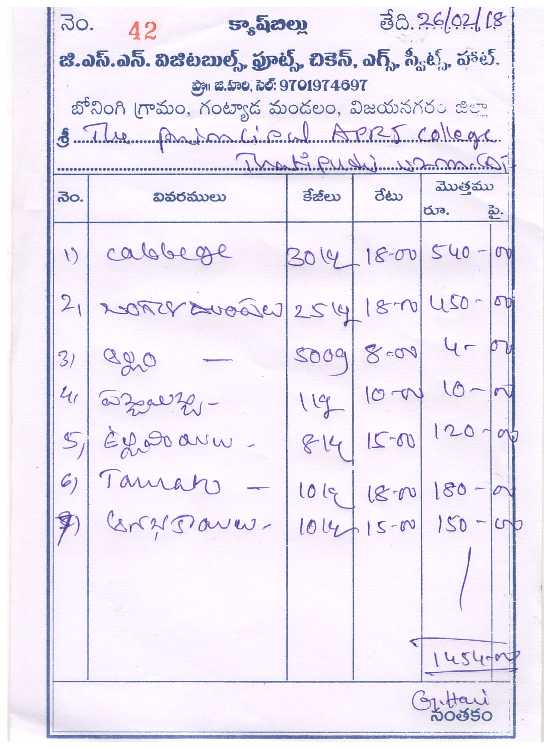 నెం. 42 క్యాష్‌బిల్లు తేది. 26/02/18
జి.ఎస్.ఎన్. విజిటబుల్స్, ఫ్రూట్స్, చికెన్, ఎగ్స్, స్వీట్స్, హాట్.
ప్రొ॥ జి.హరి, సెల్: 9701974697
బోనింగి గ్రామం, గంట్యాడ మండలం, విజయనగరం జిల్లా
శ్రీ The Principal APRJ College
Thatipudi
నెం. వివరములు కేజీలు రేటు మొత్తము
రూ. పై.
1) cabbege 30kg 18-00 540-00
2, బంగాళ దుంపలు 25kg 18-00 450-00
3) అల్లం — 500g 8-00 4-00
4, 1kg 10-00 10-00
5, ఉల్లిపాయలు - 8kg 15-00 120-00
6) Tamato — 10kg 18-00 180-00
7) ఆనభకాయలు - 10kg 15-00 150-00
1454-00
G. Hari
సంతకం